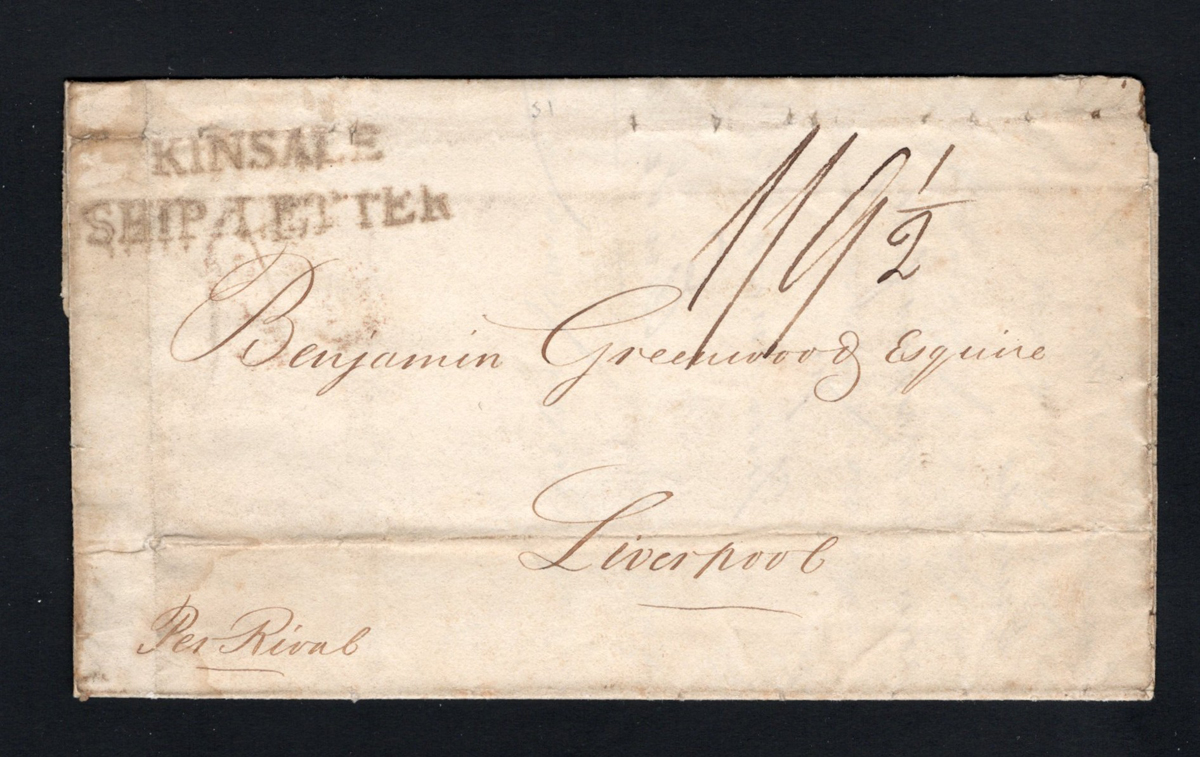 51
KINSALE
SHIP LETTER
1/9½
Benjamin Greenwood Esquire
Liverpool
Per Rival